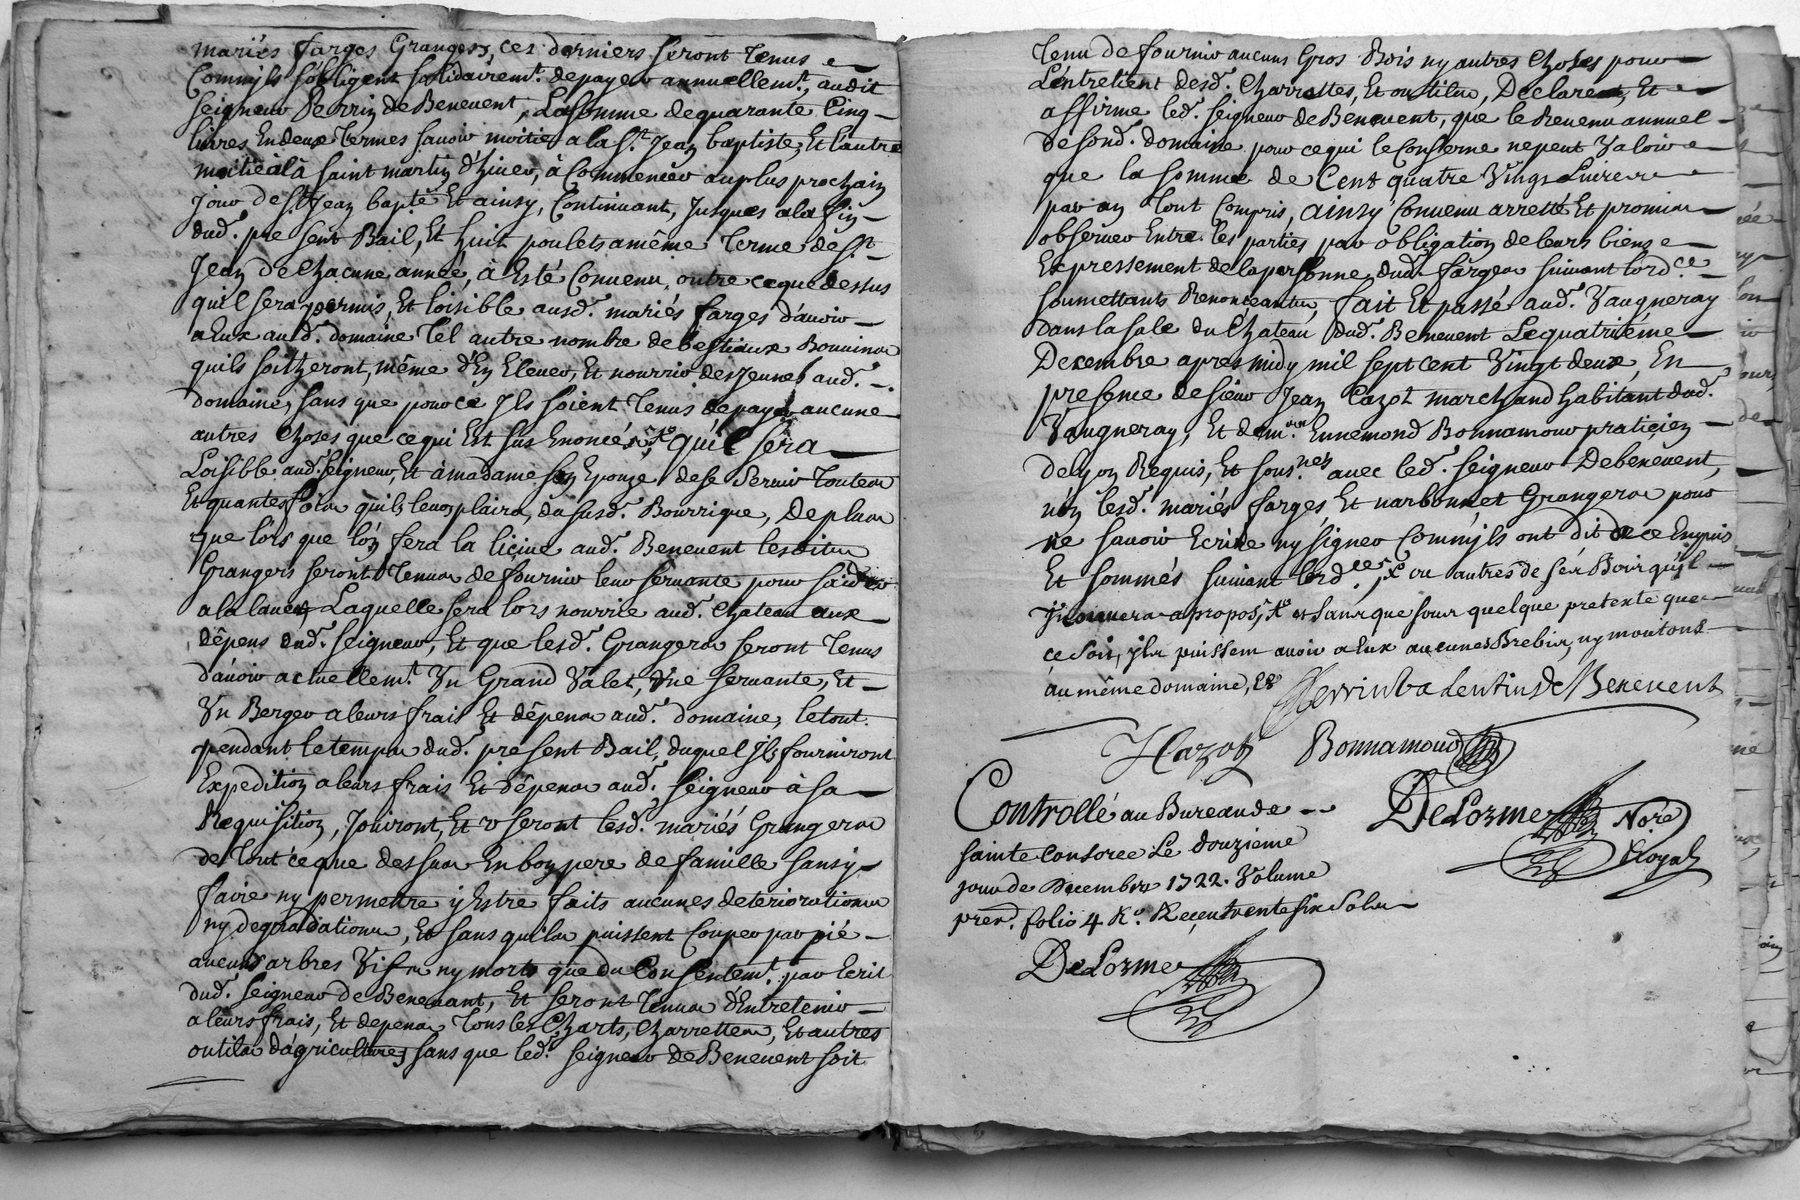 mariés farges Grangers, ces derniers seront tenus
Comm'ils s'obligent solidairem.t de payer annuellem.t, audit
seigneur Perrin de Benevent, La somme de quarante Cinq
livres En deux termes savoir moitié a la S.t Jean baptiste, Et l'autre
moitié à la saint martin d'hiver, à Commencer au plus prochain
jour de S.t Jean bapte Et ainsy, Continuant, jusques a la fin
dud.t present Bail, Et huit poulets a même terme de S.t
Jean de Chacune année, à Esté Convenu, outre ce que dessus
qu'il sera permis, Et loisible ausd.t mariés farges d'avoir
a Eux aud.t domaine tel autre nombre de bestiaux Bovins
quils souhzeront, même d'En Elever, Et nourrir des jeunes aud.t
domaine, sans que pour ce Ils soient tenus de payer aucune
autres Choses que ce qui Est sus Enoncé, qu'il sera
Loisible aud.t seigneur, Et à madame son Epouze de se servir toutes
Et quantes fois quils leur plaira, du susd.t Bourrique, De plus
que lors que lon fera la licive aud.t Benevent lesdits
Grangers seront tenus de fournir leur servante pour s'aider
a la laver Laquelle sera lors nourrie aud.t Chateau aux
dépens dud.t seigneur, Et que lesd.t Grangers seront tenus
d'avoir actuellem.t Un Grand Valet, Une servante, Et
Un Berger a leurs frais Et dépens aud.t domaine, le tout
pendant le temps dud.t present Bail, duquel Ils fourniront
Expedition a leurs frais Et dépens aud.t seigneur à sa
Requisition, Jouiront, Et useront lesd.t mariés Grangers
de tout ce que dessus En bon pere de famille sans y
faire ny permettre y Estre faits aucunes deteriorations
ny degradations, Et sans qu'ils puissent Couper par pié
aucuns arbres Vifs ny morts que du Consentem.t par Ecrit
dud.t seigneur de Benevant, Et seront tenus d'Entretenir
a leurs frais, Et depens tous les Charts, Charrettes, Et autres
outils d'agriculture, sans que led.t seigneur de Benevent soit
tenu de fournir aucuns Gros Bois ny autres Choses pour
L'entretient desd.t Charrettes, Et outils, Declarent, Et
affirme led.t seigneur de Benevent, que le Revenu annuel
de sond.t domaine pour ce qui le Conserne ne peut Valoir
que la somme de Cent quatre Vings Livres
par an tout Compris, ainsy Convenu arresté Et promis
observer Entre les parties par obligation de leurs biens
Expressement de la personne dud.t farges suivant l'ord.ce
soumettants Renonceants, fait Et passé aud.t Vaugneray
dans la sale du Chateau dud.t Benevent Le quatriéme
Decembre apres midy mil sept cent Vingt deux, En
presence de sieur Jean Cazot marchand habitant dud.t
Vaugneray, Et de m.re Ennemond Bonnamour praticien
de lyon Requis, Et sous.nés avec led.t seigneur De benevent,
non lesd.t mariés farges, Et narbonnet Grangers pour
ne savoir Ecrire ny signer Comm'ils ont dit de ce Enquis
Et sommés suivant l'ord.ce, ou autres de ses Bois qu'il
a propos, sans que sour quelque pretente que
ce soit, ils puissent avoir a Eux aucunes Brebis, ny moutons
au même domaine, &
Perrin Valentin de Benevent
J Cazot Bonnamour
Controllé au Bureau de
sainte Consorce Le douziéme
jour de Decembre 1722. Volume
prem.r folio 4 R.o Reçeu trente six sols
DeLorme No.re
Royal
DeLorme